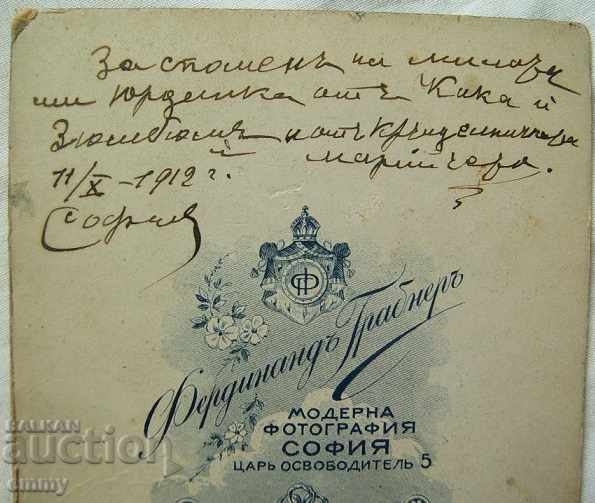 За споменъ на милата
ни Юрданка отъ Кака ѝ
Зюмбюлъ и отъ
ѝ
11/X - 1912 г.
София
ФФ
Фердинандъ Грабнеръ
МОДЕРНА
ФОТОГРАФИЯ
СОФИЯ
ЦАРЬ ОСВОБОДИТЕЛЬ 5
БАЛКАН
auction
cmmy